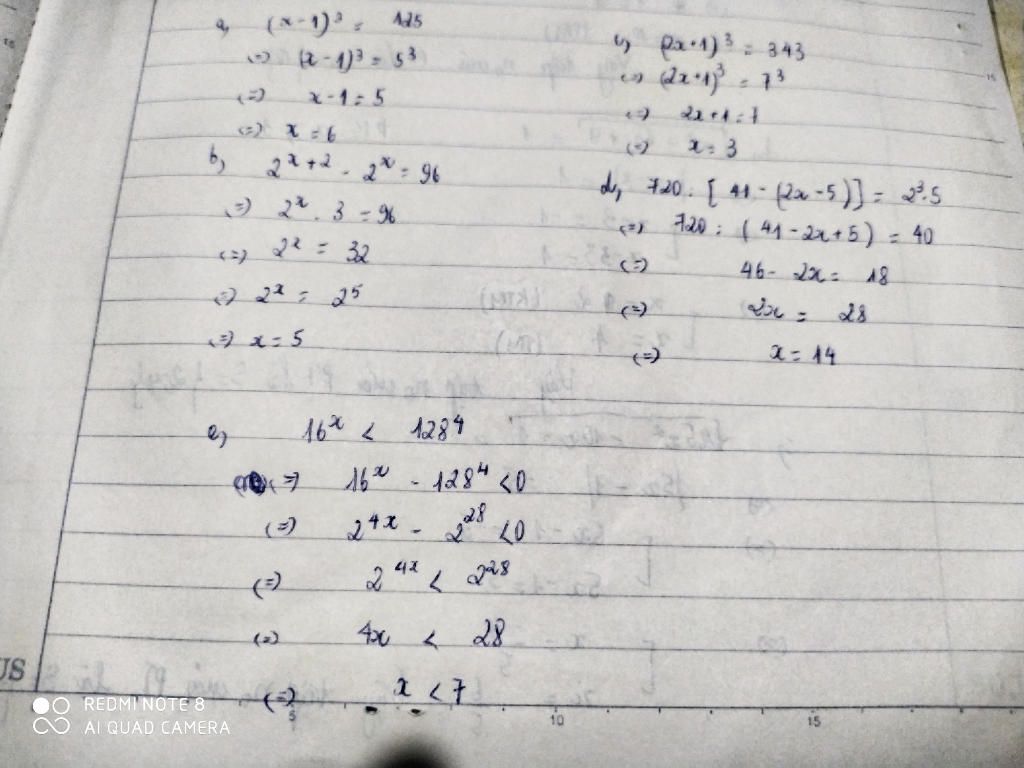 a, (x-1)³ = 125
(=) (x-1)³ = 5³
(=) x-1 = 5
(=) x = 6
b, 2^{x+2} - 2^x = 96
(=) 2^x . 3 = 96
(=) 2^x = 32
(=) 2^x = 2^5
(=) x = 5
c, (2x+1)³ = 343
(=) (2x+1)³ = 7³
(=) 2x+1 = 7
(=) x = 3
d, 720 : [41-(2x-5)] = 2³.5
(=) 720 : (41-2x+5) = 40
(=) 46 - 2x = 18
(=) 2x = 28
(=) x = 14
e, 16^x < 128^4
(=) 16^x - 128^4 < 0
(=) 2^{4x} - 2^{28} < 0
(=) 2^{4x} < 2^{28}
(=) 4x < 28
(=) x < 7
US
5 10 15
REDMI NOTE 8
AI QUAD CAMERA